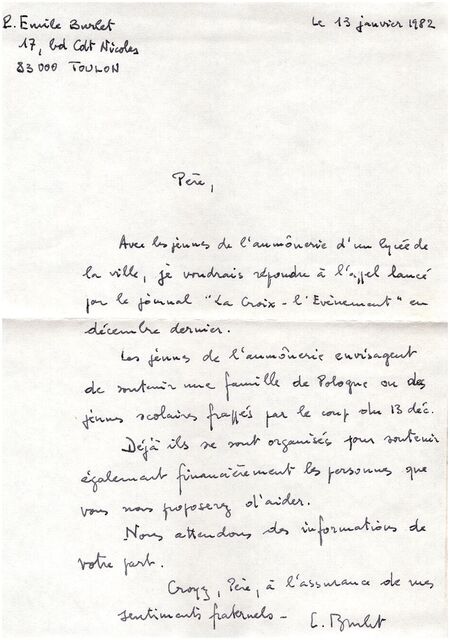 P. Emile Burlet
Le 13 janvier 1982
17, bd Cdt Nicolas
83000 TOULON
Père,
Avec les jeunes de l'aumônerie d'un lycée de
la ville, je voudrais répondre à l'appel lancé
par le journal "La Croix - l'Evénement" en
décembre dernier.
Les jeunes de l'aumônerie envisagent
de soutenir une famille de Pologne ou des
jeunes scolaires frappés par le coup du 13 déc.
Déjà ils se sont organisés pour soutenir
également financièrement les personnes que
vous nous proposerez d'aider.
Nous attendons des informations de
votre part.
Croyez, Père, à l'assurance de mes
sentiments fraternels -
E. Burlet